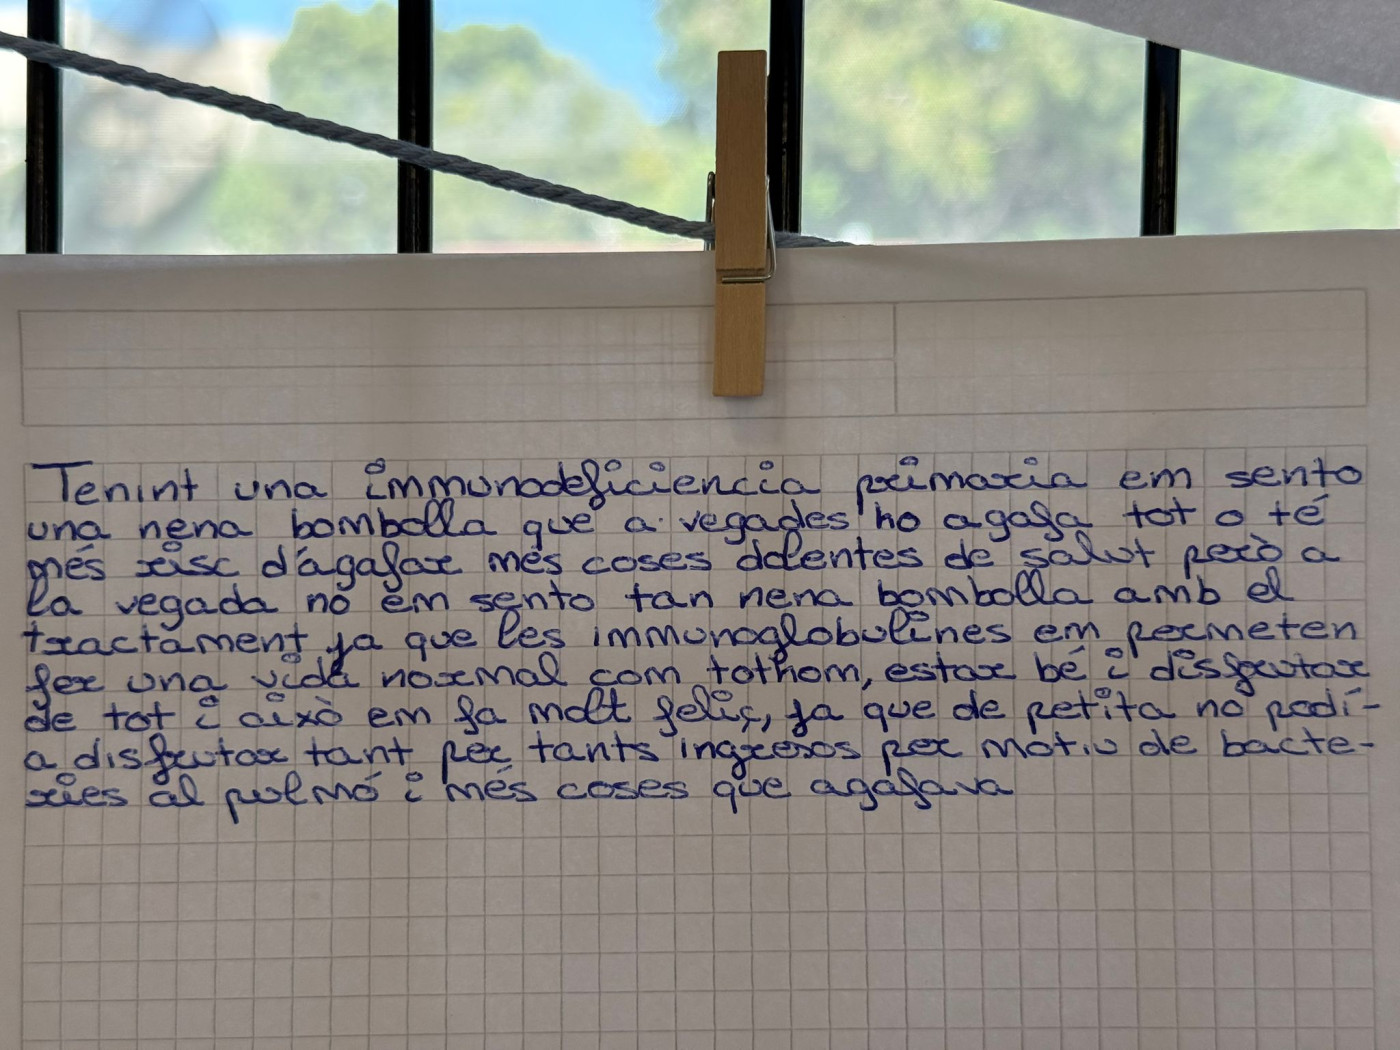 Tenint una immunodeficiencia primaria em sento
una nena bombolla que a vegades ho agafa tot o té
més risc d'agafar més coses dolentes de salut però a
la vegada no em sento tan nena bombolla amb el
tractament ja que les immunoglobulines em permeten
fer una vida normal com tothom, estar bé i disfrutar
de tot i això em fa molt feliç, ja que de petita no podí-
a disfrutar tant per tants ingresos per motiu de bacte-
ries al pulmó i més coses que agafava